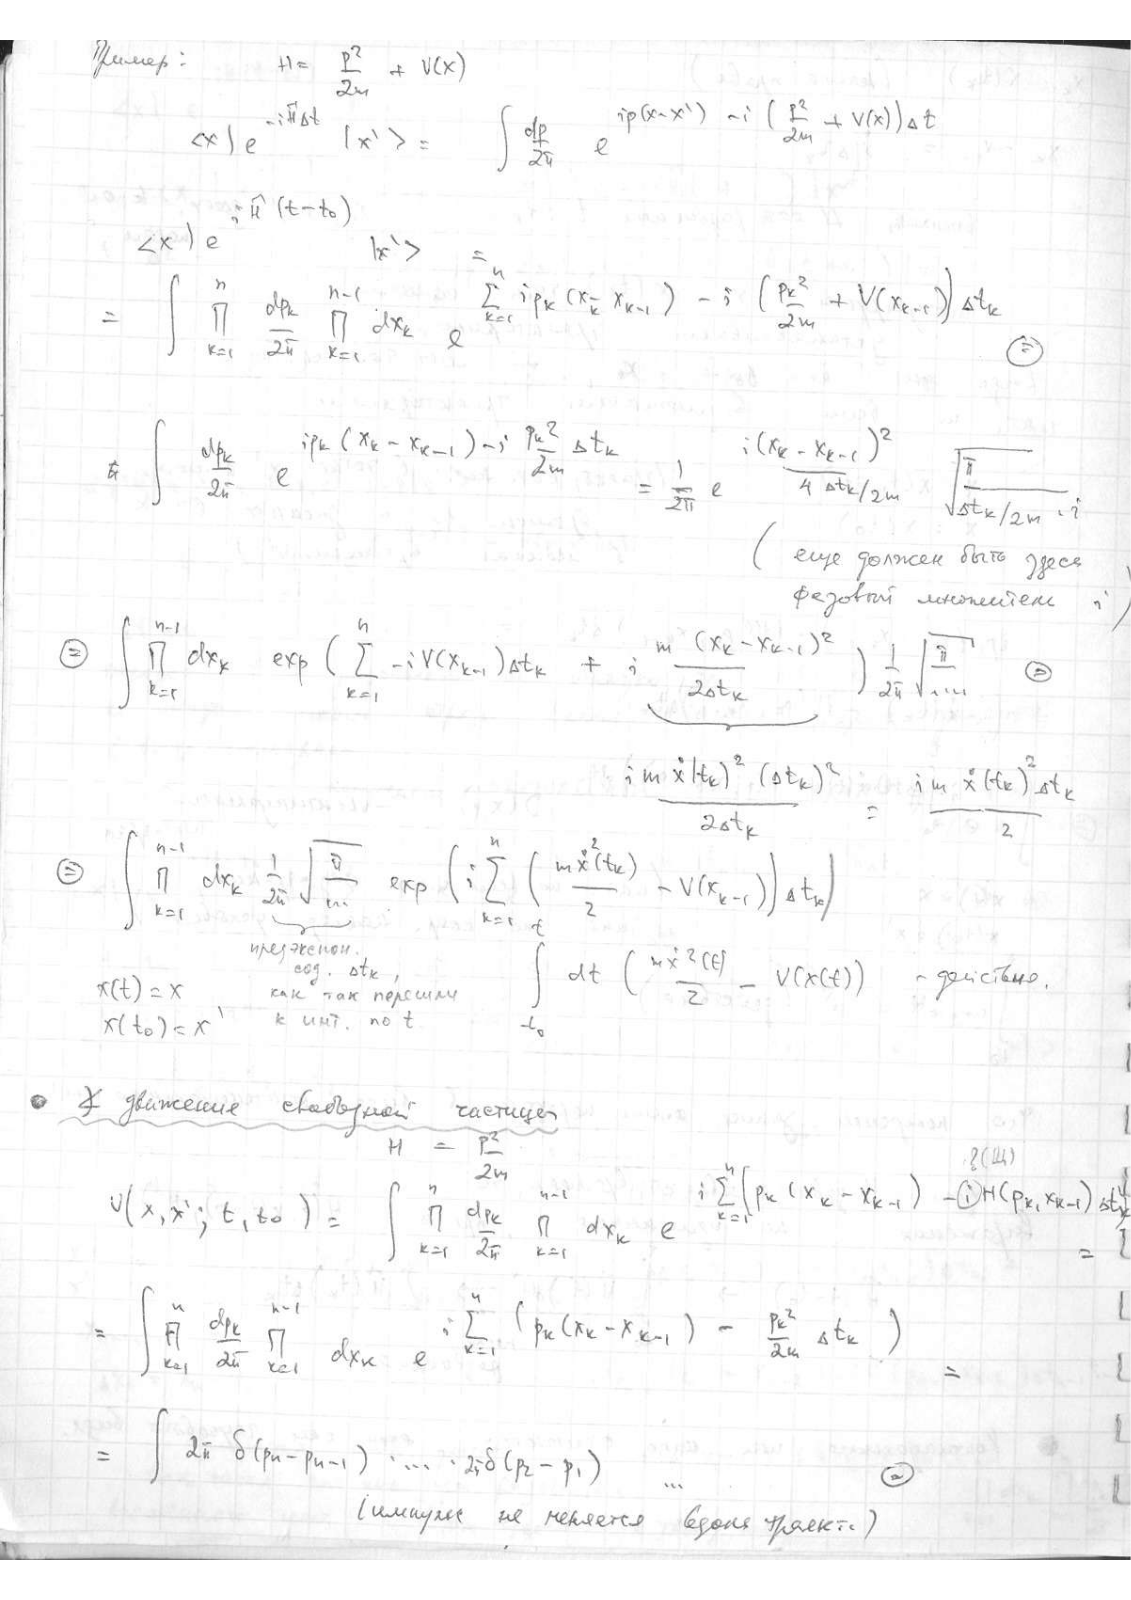 Пример: H = p²/2m + V(x)
<x| e^{-iĤΔt} |x'> = ∫ dp/2π e^{ip(x-x') - i(p²/2m + V(x))Δt}
<x| e^{iĤ(t-t₀)} |x'> =
= ∫ ∏_{k=1}^{n} dp_k/2π ∏_{k=1}^{n-1} dx_k e^{∑_{k=1}^{n} ip_k(x_k - x_{k-1}) - i(p_k²/2m + V(x_{k-1}))Δt_k} ⊜
∫ dp_k/2π e^{ip_k(x_k - x_{k-1}) - i p_k²/2m Δt_k} = 1/2π e^{i(x_k - x_{k-1})²/(4Δt_k/2m)} √(π/(Δt_k/2m · i))
(еще должен быть здесь
фазовый множитель i)
⊜ ∫ ∏_{k=1}^{n-1} dx_k exp(∑_{k=1}^{n} -iV(x_{k-1})Δt_k + i m(x_k - x_{k-1})²/2Δt_k) 1/2π √(π/...) ⊜
i m ẋ(t_k)² (Δt_k)²/2Δt_k = i m ẋ(t_k)² Δt_k/2
⊜ ∫ ∏_{k=1}^{n-1} dx_k 1/2π √(π/...) exp(i∑_{k=1}^{n} (mẋ²(t_k)/2 - V(x_{k-1}))Δt_k)
предэкспон.
сод. Δt_k,
как так перешли
к инт. по t
x(t) = x
x(t₀) = x'
∫_{t₀}^{t} dt (mẋ²(t)/2 - V(x(t))) - действие.
• движение свободной частицы
H = p²/2m
?(Ш)
U(x, x'; t, t₀) = ∫ ∏_{k=1}^{n} dp_k/2π ∏_{k=1}^{n-1} dx_k e^{i∑_{k=1}^{n}(p_k(x_k - x_{k-1}) - ⓘH(p_k, x_{k-1})Δt_k} =
= ∫ ∏_{k=1}^{n} dp_k/2π ∏_{k=1}^{n-1} dx_k e^{i∑_{k=1}^{n}(p_k(x_k - x_{k-1}) - p_k²/2m Δt_k)} =
= ∫ 2π δ(p_n - p_{n-1}) ..... 2πδ(p₂ - p₁) ... ⊜
(импульс не меняется вдоль траект.)